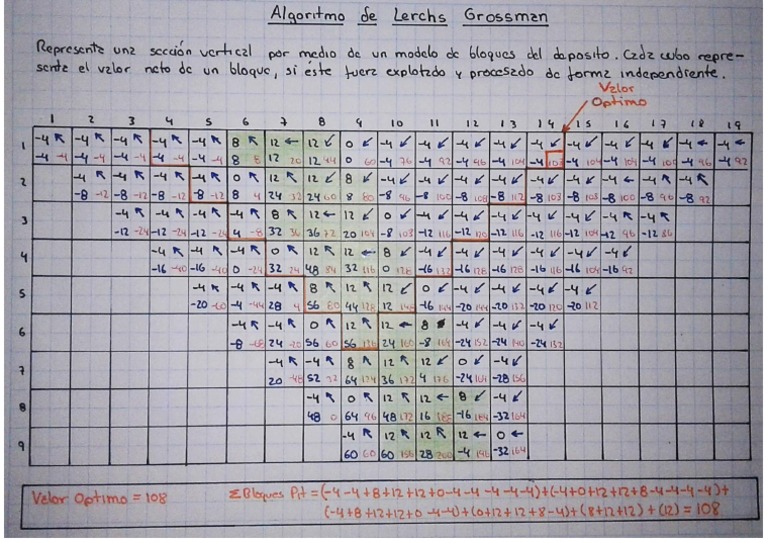 Algoritmo de Lerchs Grossman
Represente una sección vertical por medio de un modelo de bloques del deposito. Cada cubo repre-
sente el valor neto de un bloque, si éste fuera explotado y procesado de forma independiente.
Valor
Optimo
1 2 3 4 5 6 7 8 9 10 11 12 13 14 15 16 17 18 19
1 -4 ↖ -4 ↖ -4 ↖ -4 ↖ -4 ↖ 8 ↖ 12 ← 12 ↙ 0 ↙ -4 ↙ -4 ↙ -4 ↙ -4 ↙ -4 ↙ -4 ↙ -4 ↙ -4 ↙ -4 ← -4 ←
-4 -4 -4 -4 -4 -4 -4 -4 -4 -4 8 8 12 20 12 44 0 60 -4 76 -4 92 -4 96 -4 104 -4 -4 104 -4 104 -4 104 -4 96 -4 92
2 -4 ↖ -4 ↖ -4 ↖ -4 ↖ 0 ↖ 12 ↖ 12 ↙ 8 ↙ -4 ↙ -4 ↙ -4 ↙ -4 ↙ -4 ↙ -4 ↙ -4 ← -4 ↖ -4 ↖
-8 -12 -8 -12 -8 -12 -8 -12 8 4 24 32 24 60 8 80 -8 96 -8 100 -8 108 -8 112 -8 -8 -8 100 -8 96 -8 92
3 -4 ↖ -4 ↖ -4 ↖ -4 ↖ 8 ↖ 12 ← 12 ↙ 0 ↙ -4 ↙ -4 ↙ -4 ↙ -4 ↙ -4 ↙ -4 ↖ -4 ↖
-12 -24 -12 -24 -12 -24 4 -8 32 36 36 72 20 104 -8 -12 116 -12 120 -12 116 -12 116 -12 104 -12 96 -12
4 -4 ↖ -4 ↖ -4 ↖ 0 ↖ 12 ↖ 12 ← 8 ↙ -4 ↙ -4 ↙ -4 ↙ -4 ↙ -4 ↙ -4 ↙
-16 -40 -16 -40 0 -24 32 24 48 84 32 116 0 128 -16 132 -16 128 -16 128 -16 116 -16 104 -16 92
5 -4 ↖ -4 ↖ -4 ↖ 8 ↖ 12 ↖ 12 ↙ 0 ↙ -4 ↙ -4 ↙ -4 ↙ -4 ↙
-20 -60 -4 -44 28 4 56 80 44 128 12 -16 144 -20 144 -20 132 -20 120 -20 112
6 -4 ↖ -4 ↖ 0 ↖ 12 ↖ 12 ← 8 -4 ↙ -4 ↙ -4 ↙
-8 24 -20 56 60 56 136 24 160 -8 164 -24 152 -24 140 -24 132
7 -4 ↖ -4 ↖ 8 ↖ 12 ↖ 12 ↙ 0 ↙ -4 ↙
20 -48 52 32 64 124 36 172 4 176 -24 164 -28 156
8 -4 ↖ 0 ↖ 12 ↖ 12 ← 8 ↙ -4 ↙
48 0 64 96 48 172 16 188 -16 184 -32 164
9 -4 ↖ 12 ↖ 12 ↖ 12 ← 0 ←
60 60 60 156 28 200 -4 196 -32 164
Valor Optimo = 108
ΣBloques Pit = (-4-4+8+12+12+0-4-4-4-4-4)+(-4+0+12+12+8-4-4-4-4)+
(-4+8+12+12+0-4-4)+(0+12+12+8-4)+(8+12+12)+(12) = 108